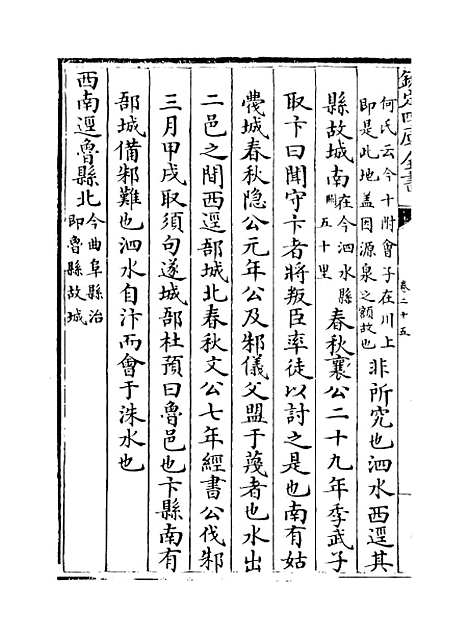 欽定四庫全書
卷二十五
何氏云今十附會子在川上
即是此地蓋因源泉之額故也
非所究也泗水西逕其
縣故城南
在今泗水縣
五十里
春秋襄公二十九年季武子
取卞曰聞守卞者將叛臣率徒以討之是也南有姑
蔑城春秋隐公元年公及邾儀父盟于蔑者也水出
二邑之間西逕郚城北春秋文公七年經書公伐邾
三月甲戌取須句遂城郚杜預曰魯邑也卞縣南有
郚城備邾難也泗水自汴而會于洙水也
西南逕魯縣北
今曲阜縣治
即魯縣故城